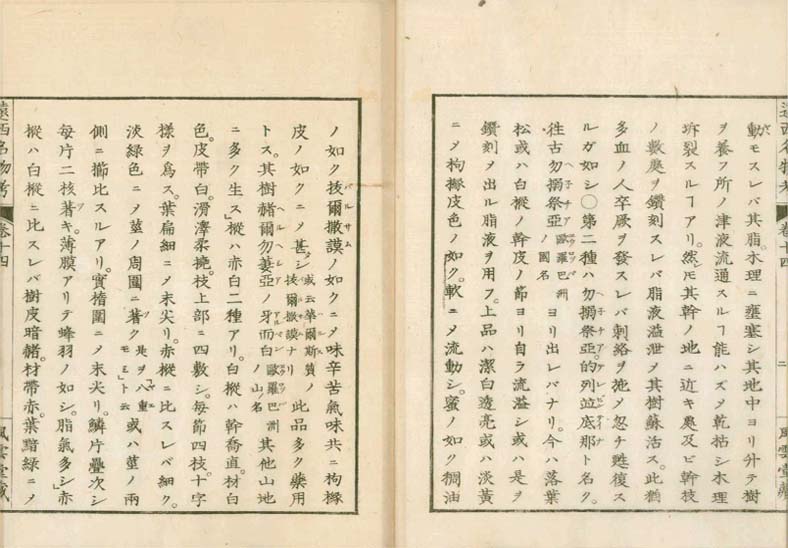 遠西名物考
卷十四
二
風雲堂藏
動モスレバ其脂、木理ニ壅塞シ其地中ヨリ升テ樹
ヲ養フ所ノ津液流通スルヿ能ハズメ乾枯シ木理
坼裂スルヿアリ。然𪜈其幹ノ地ニ近キ處及ビ幹枝
ノ數處ヲ鑽刻スレバ脂液溢泄メ其樹蘇活ス。此猶
多血ノ人卒厥ヲ發スレバ刺絡ヲ施メ忽チ甦復ス
ルガ如シ〇第二種ハ勿搦祭亞的列並底那ト名ク。
往古勿搦祭亞歐羅巴洲ノ國名ヨリ出レバナリ。今ハ落葉
松或ハ白樅ノ幹皮ノ節ヨリ自ラ流溢シ或ハ是ヲ
鑽刻メ出ル脂液ヲ用フ。上品ハ潔白透亮或ハ淡黃
ニメ枸櫞皮色ノ如ク。軟ニメ流動シ。蜜ノ如ク稠油
ノ如ク拔爾撒謨ノ如クニメ味辛苦氣味共ニ枸櫞
皮ノ如クニメ甚シ或云華爾斯質ノ拔爾撒謨ナリ此品多ク藥用
トス。其樹赭爾勿萋亞ノ牙而白歐羅巴洲ノ山名其他山地
ニ多ク生ス」樅ハ赤白二種アリ。白樅ハ幹喬直。材白
色。皮帶白。滑澤柔撓。枝上部ニ四敷シ。每節四枝。十字
樣ヲ爲ス。葉扁細ニメ末尖リ。赤樅ニ比スレバ細ク。
淡綠色ニメ莖ノ周圍ニ著ク是ヲ八重モミト云或ハ莖ノ兩
側ニ櫛比スルアリ。實橢圓ニメ末尖リ。鱗片疊次シ
每片二核著キ。薄膜アリテ蜂羽ノ如シ。脂氣多シ」赤
樅ハ白樅ニ比スレバ樹皮暗赭。材帶赤。葉黯綠ニメ
遠西名物考
卷十四
風雲堂藏